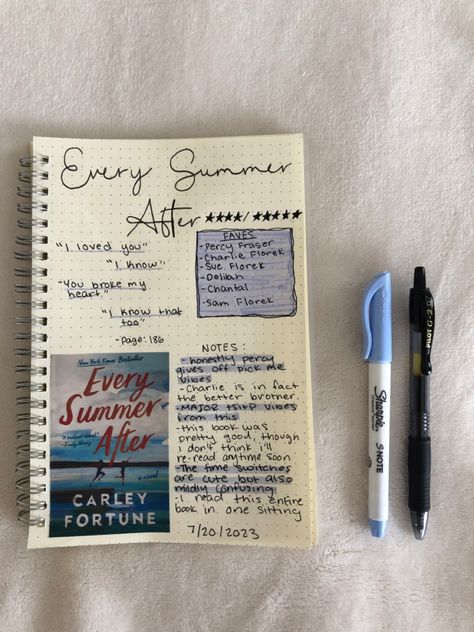 Every Summer
After ★★★★/★★★★★
"I loved you"
"I know"
"You broke my
heart."
"I know that
too"
-Page: 186
FAVES
-Percy Fraser
-Charlie Florek
-Sue Florek
-Delilah
-Chantal
-Sam Florek
NOTES:
-honestly percy
gives off pick me
vibes
-Charlie is in fact
the better brother
-MAJOR TSITP vibes
from this
-this book was
pretty good, though
I don't think i'll
re-read anytime soon
-The time switches
are cute but also
mildly confusing
-I read this entire
book in one sitting
7/20/2023
New York Times Bestseller
Every
Summer
After
a novel
CARLEY
FORTUNE
Sharpie
S·NOTE
PILOT G-2